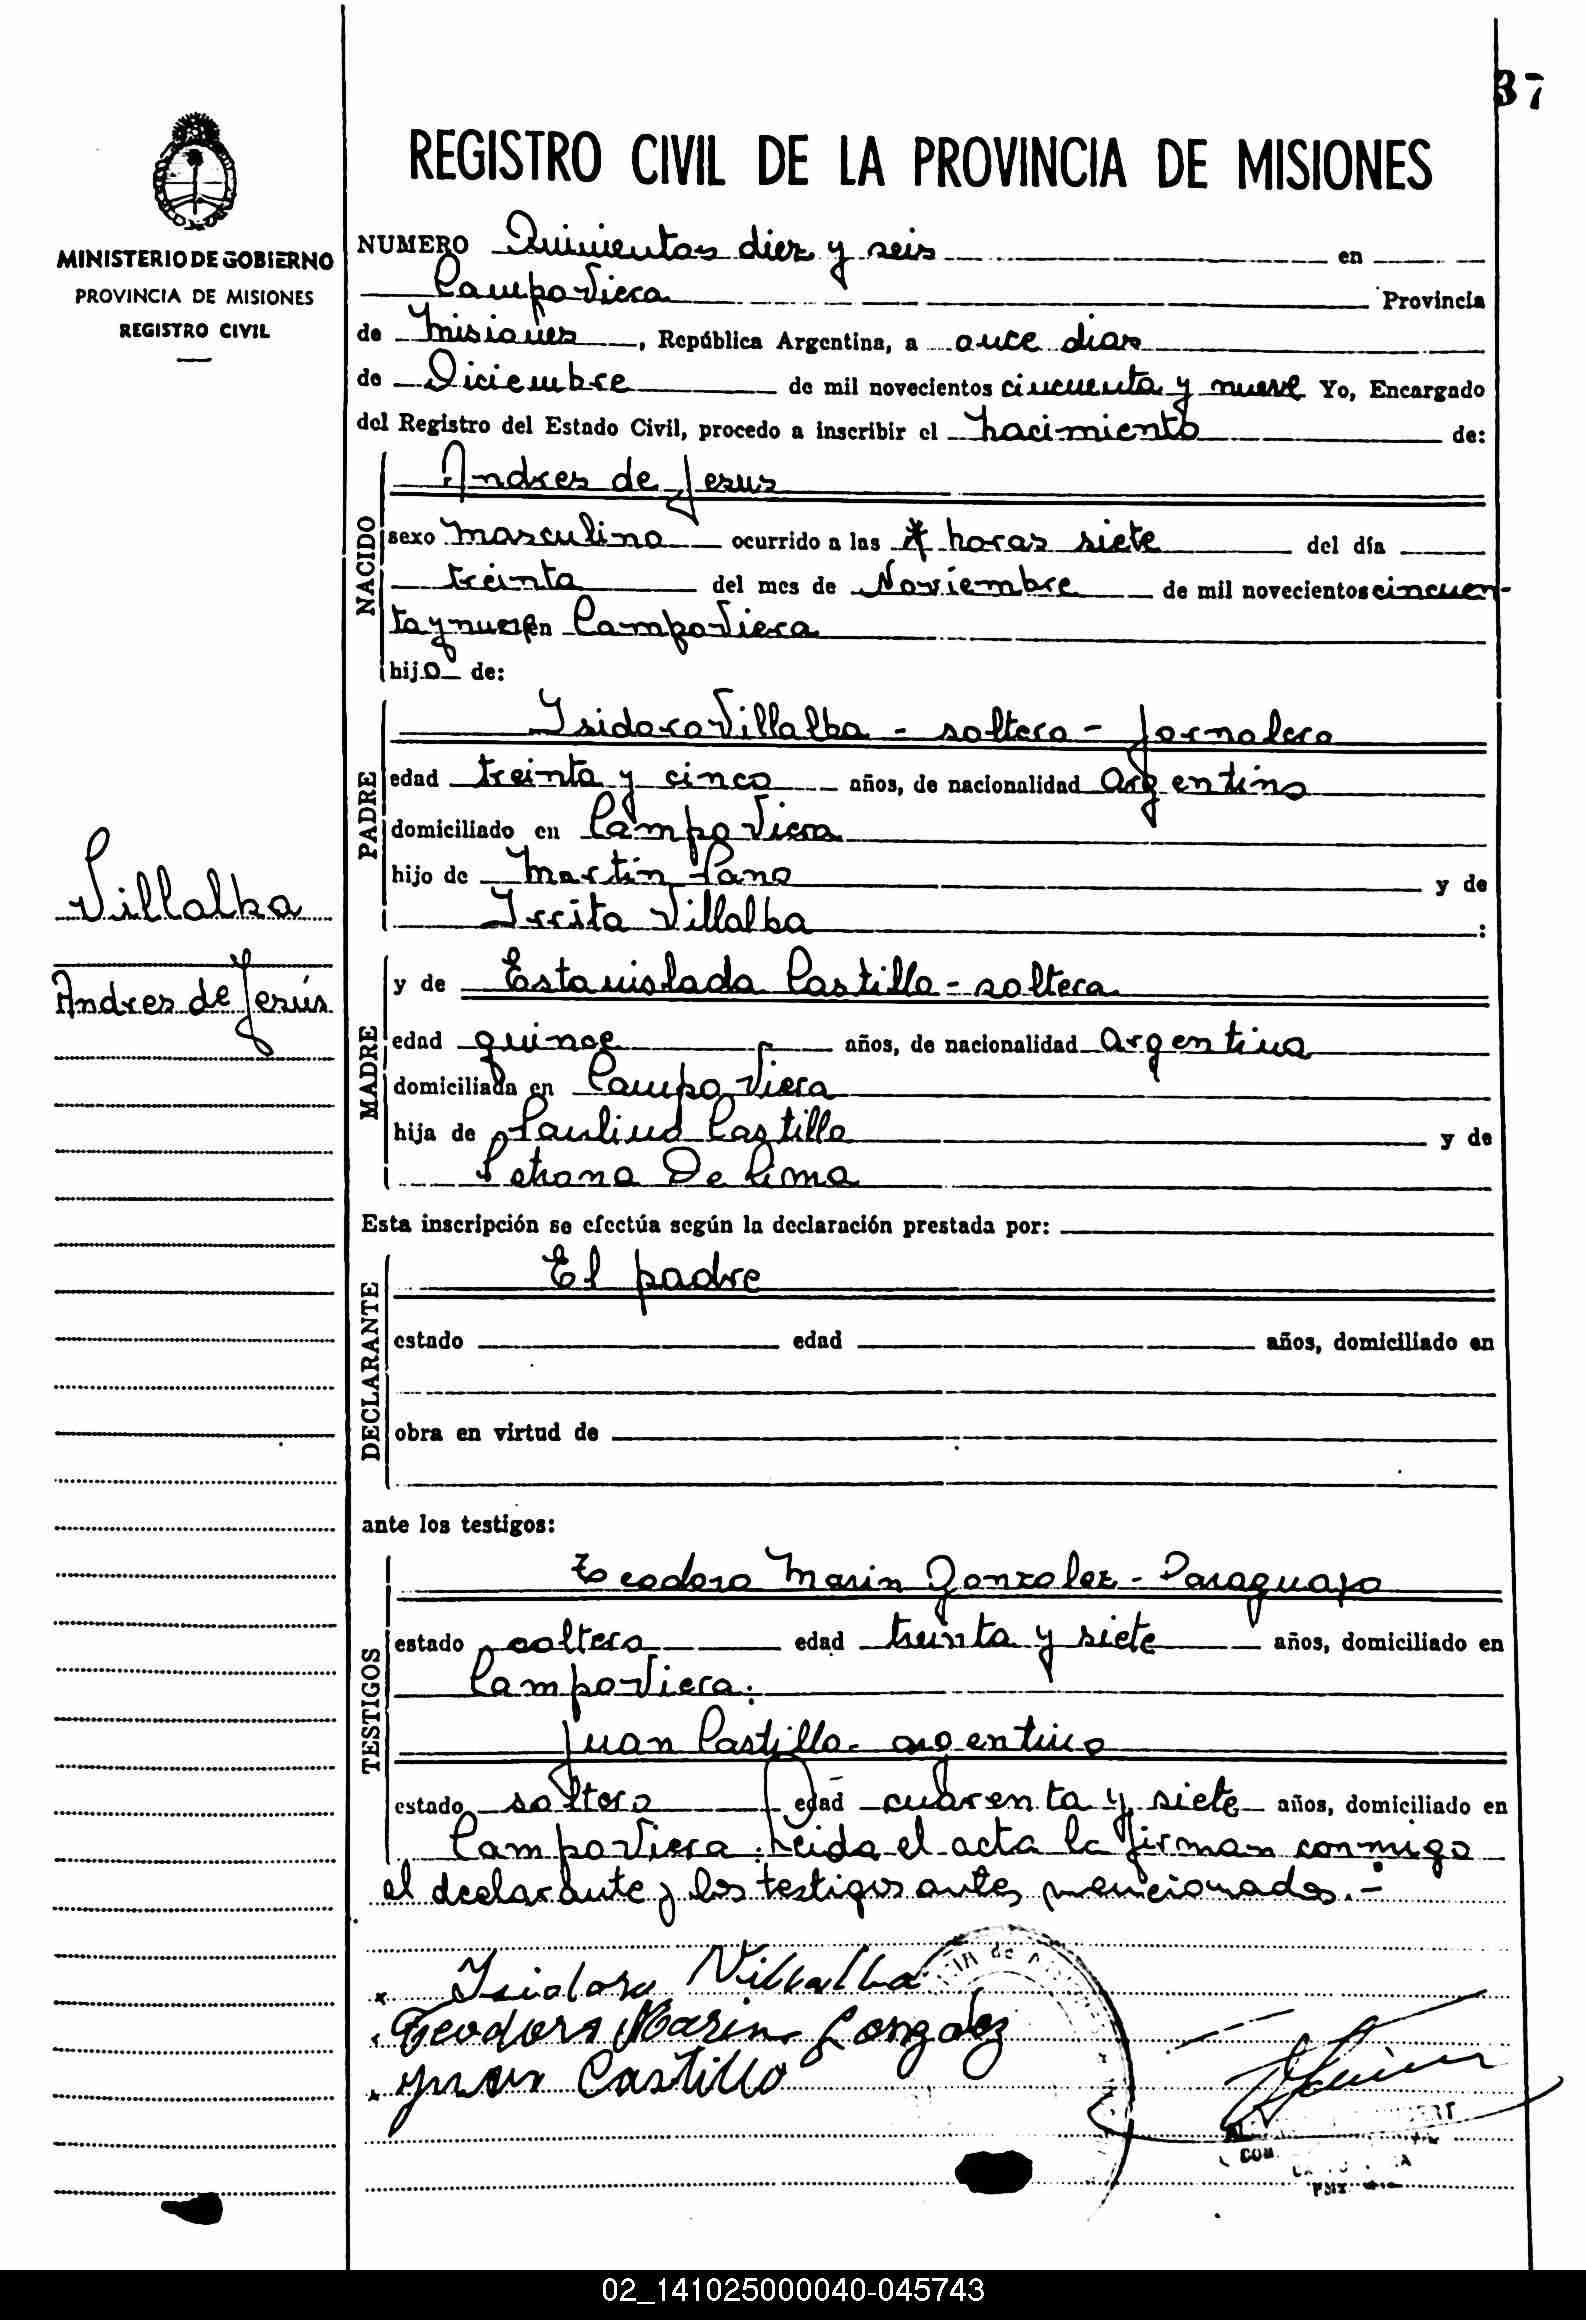 37
REGISTRO CIVIL DE LA PROVINCIA DE MISIONES
MINISTERIO DE GOBIERNO
PROVINCIA DE MISIONES
REGISTRO CIVIL
Villalba
Andres de Jesús
NUMERO Quinientos diez y seis en
Campo Viera Provincia
de Misiones, República Argentina, a once dias
de Diciembre de mil novecientos cincuenta y nueve Yo, Encargado
del Registro del Estado Civil, procedo a inscribir el nacimiento de:
NACIDO
Andres de Jesus
sexo masculino ocurrido a las horas siete del día
treinta del mes de Noviembre de mil novecientos cincuen-
ta y nueve en Campo Viera
hijo de:
PADRE
Isidoro Villalba - soltero - Jornalero
edad treinta y cinco años, de nacionalidad argentino
domiciliado en Campo Viera
hijo de Martin y de
Villalba:
MADRE
y de Estanislada Castillo - soltera
edad quince años, de nacionalidad argentina
domiciliada en Campo Viera
hija de Paulino Castillo y de
Petrona De Lima
Esta inscripción se efectúa según la declaración prestada por:
DECLARANTE
El padre
estado edad años, domiciliado en
obra en virtud de
ante los testigos:
TESTIGOS
Teodoro Marin Gonzalez - Paraguayo
estado soltero edad treinta y siete años, domiciliado en
Campo Viera.
Juan Castillo - argentino
estado soltero edad cuarenta y siete años, domiciliado en
Campo Viera. Leida el acta la firman conmigo
el declarante y los testigos antes mencionados.-
x Isidoro Villalba
x Teodoro Marin Gonzalez
x Juan Castillo
02_141025000040-045743